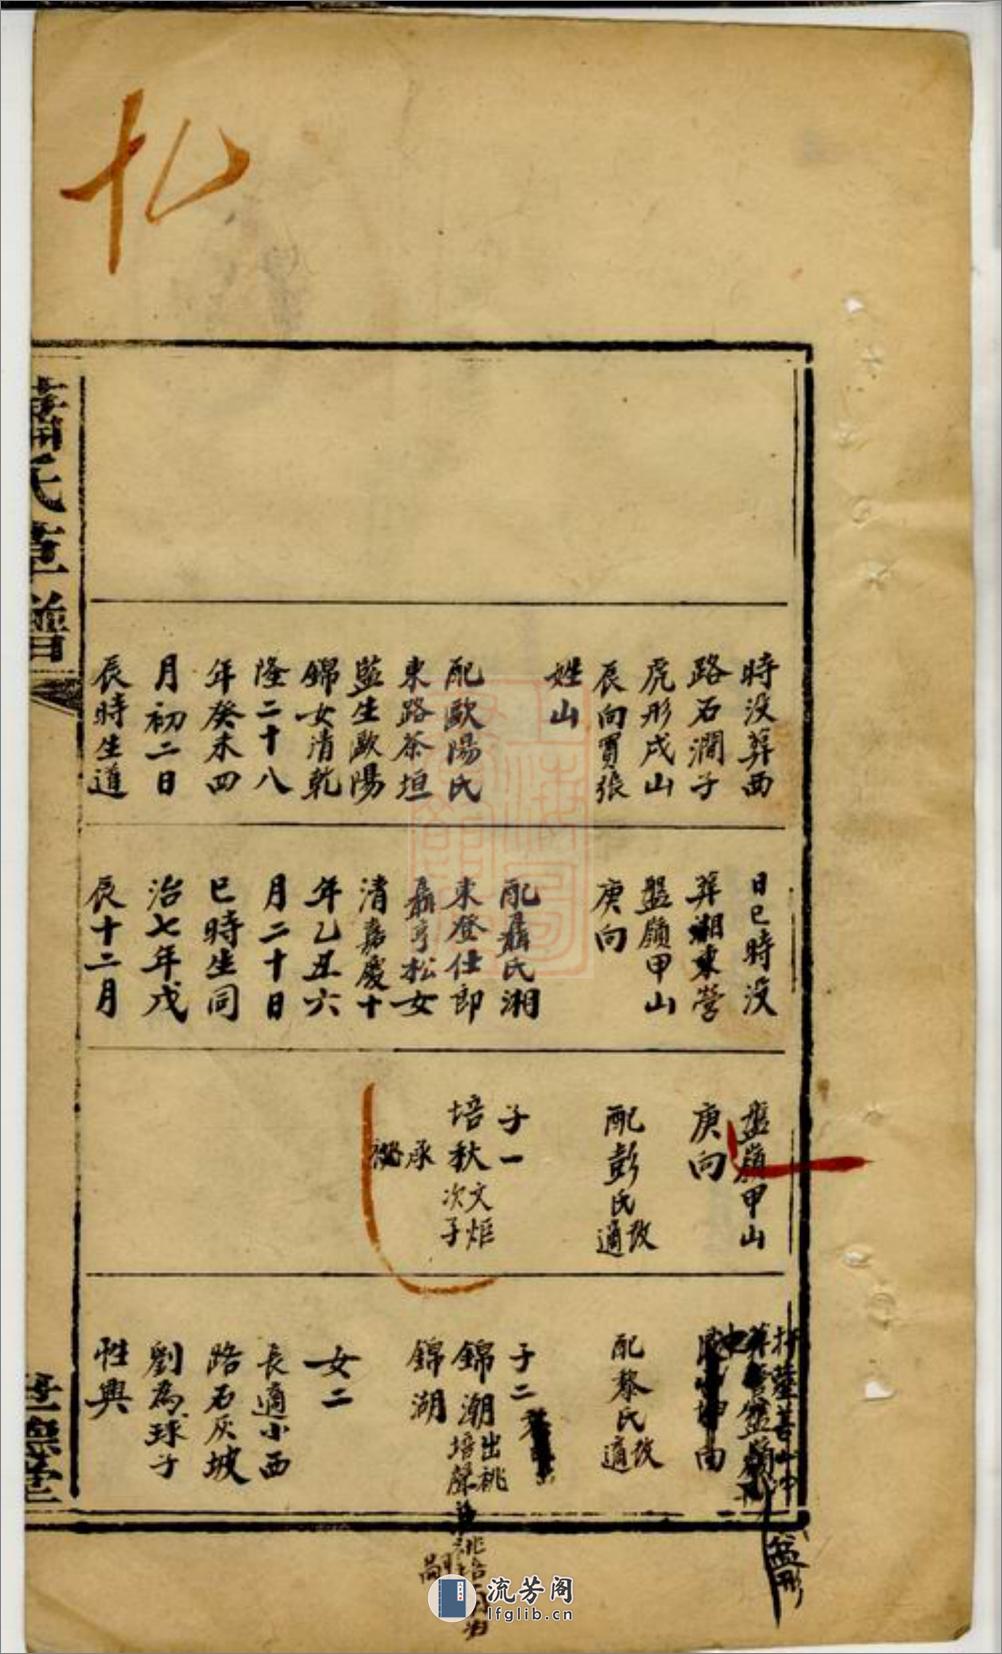 扎
蕭氏草譜
世德堂
時没葬西
路石澗子
虎形戌山
辰向買張
姓山
配歐陽氏
東路茶垣
監生歐陽
錦女清乾
隆二十八
年癸未四
月初二日
辰時生道
日巳時没
葬湘東營
盤嶺甲山
庚向
配聶氏湘
東登仕郎
聶亨松女
清嘉慶十
年乙丑六
月二十日
巳時生同
治七年戊
辰十二月
盤嶺甲山
庚向
配彭氏改
適
子一
培秋文炬
次子
承
配黎氏改
適
子二
錦潮出祧
培聲
錦湖
女二
長適小西
路石灰坡
劉為球子
性興
盆形
流芳阁
lfglib.cn